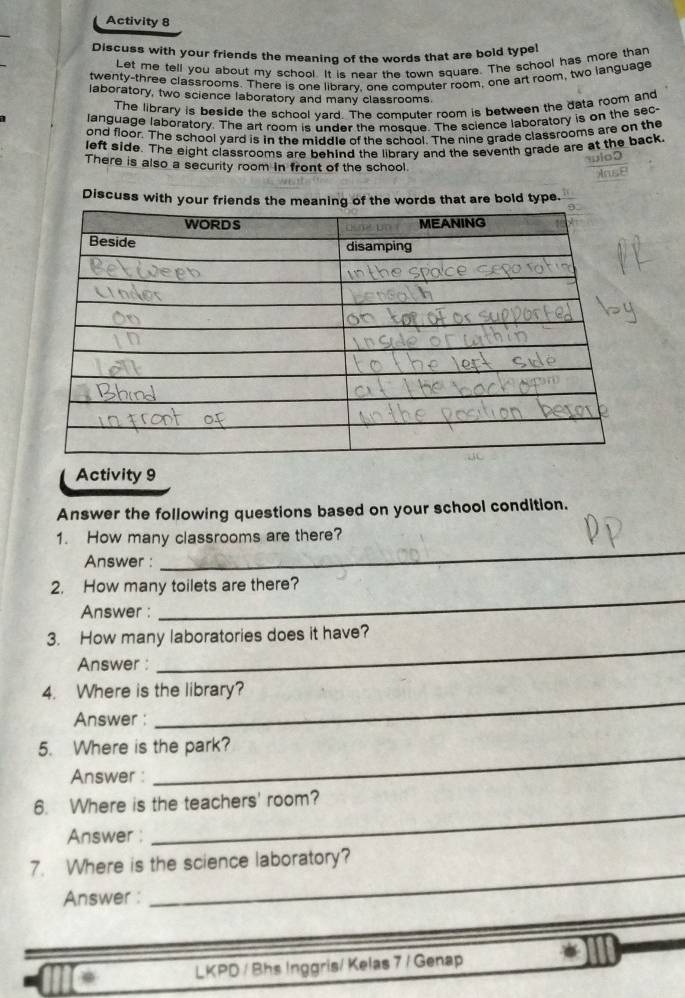 Activity 8
Discuss with your friends the meaning of the words that are bold type!
Let me tell you about my school. It is near the town square. The school has more than
twenty-three classrooms. There is one library, one computer room, one art room, two language
laboratory, two science laboratory and many classrooms.
The library is beside the school yard. The computer room is between the data room and
language laboratory. The art room is under the mosque. The science laboratory is on the sec-
ond floor. The school yard is in the middle of the school. The nine grade classrooms are on the
left side. The eight classrooms are behind the library and the seventh grade are at the back.
There is also a security room in front of the school.
Discuss with your friends the meaning of the words that are bold type.
WORDS MEANING
Beside disamping
Between in the space separating PR
Under beneath
on on top of or supported by
in inside or within
left to the left side
Bhind at the back of
in front of in the position before
Activity 9
Answer the following questions based on your school condition.
1. How many classrooms are there? PP
Answer :
2. How many toilets are there?
Answer :
3. How many laboratories does it have?
Answer :
4. Where is the library?
Answer :
5. Where is the park?
Answer :
6. Where is the teachers' room?
Answer :
7. Where is the science laboratory?
Answer :
LKPD / Bhs Inggris/ Kelas 7 / Genap